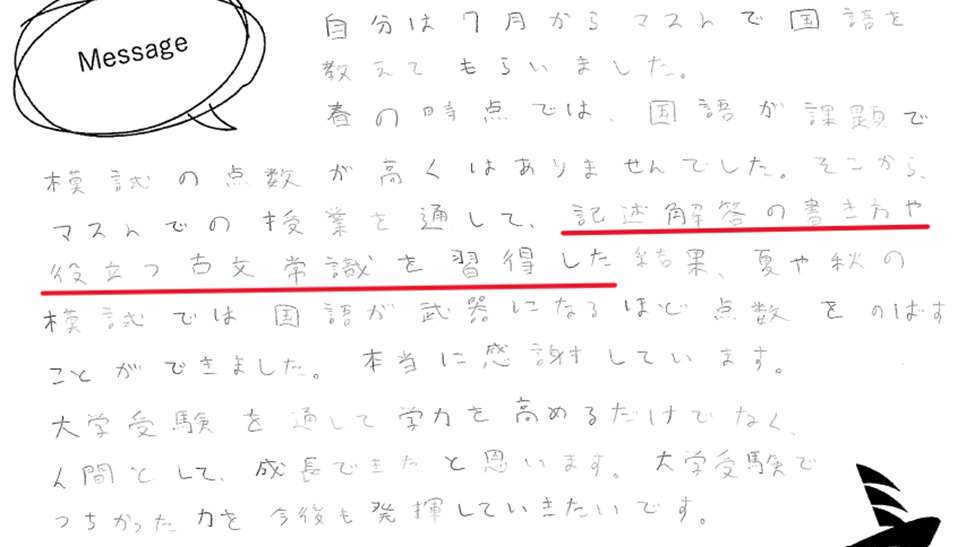 Message
自分は7月からマストで国語を
教えてもらいました。
春の時点では、国語が課題で
模試の点数が高くはありませんでした。そこから、
マストでの授業を通して、記述解答の書き方や
役立つ古文常識を習得した結果、夏や秋の
模試では国語が武器になるほど点数をのばす
ことができました。本当に感謝しています。
大学受験を通して学力を高めるだけでなく、
人間として、成長できたと思います。大学受験で
つちかった力を今後も発揮していきたいです。